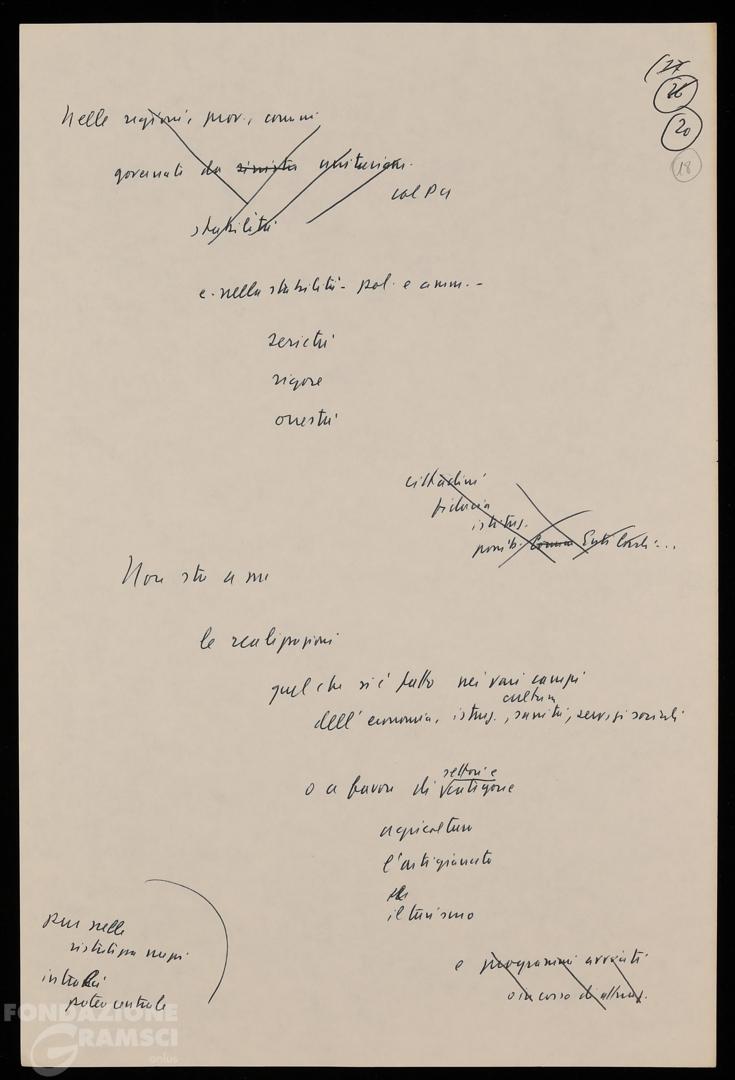 (27
26
20
18
Nelle regioni, prov., comuni
governati da sinistra unitariam.
col PCI
stabilità
e - nella stabilità - pol. e amm. -
serietà
rigore
onestà
cittadini
fiducia
istituz.
Comuni Enti locali...
Non sto a
le realizzazioni
quel che si è fatto nei vari campi
cultura
dell'economia, istruz., sanità, servizi sociali
settori e
o a favore di categorie
agricoltura
l'artigianato
il turismo
e programmi avviati
o in corso di attuaz.
pur nelle
intralci
potere centrale
FONDAZIONE
GRAMSCI
onlus